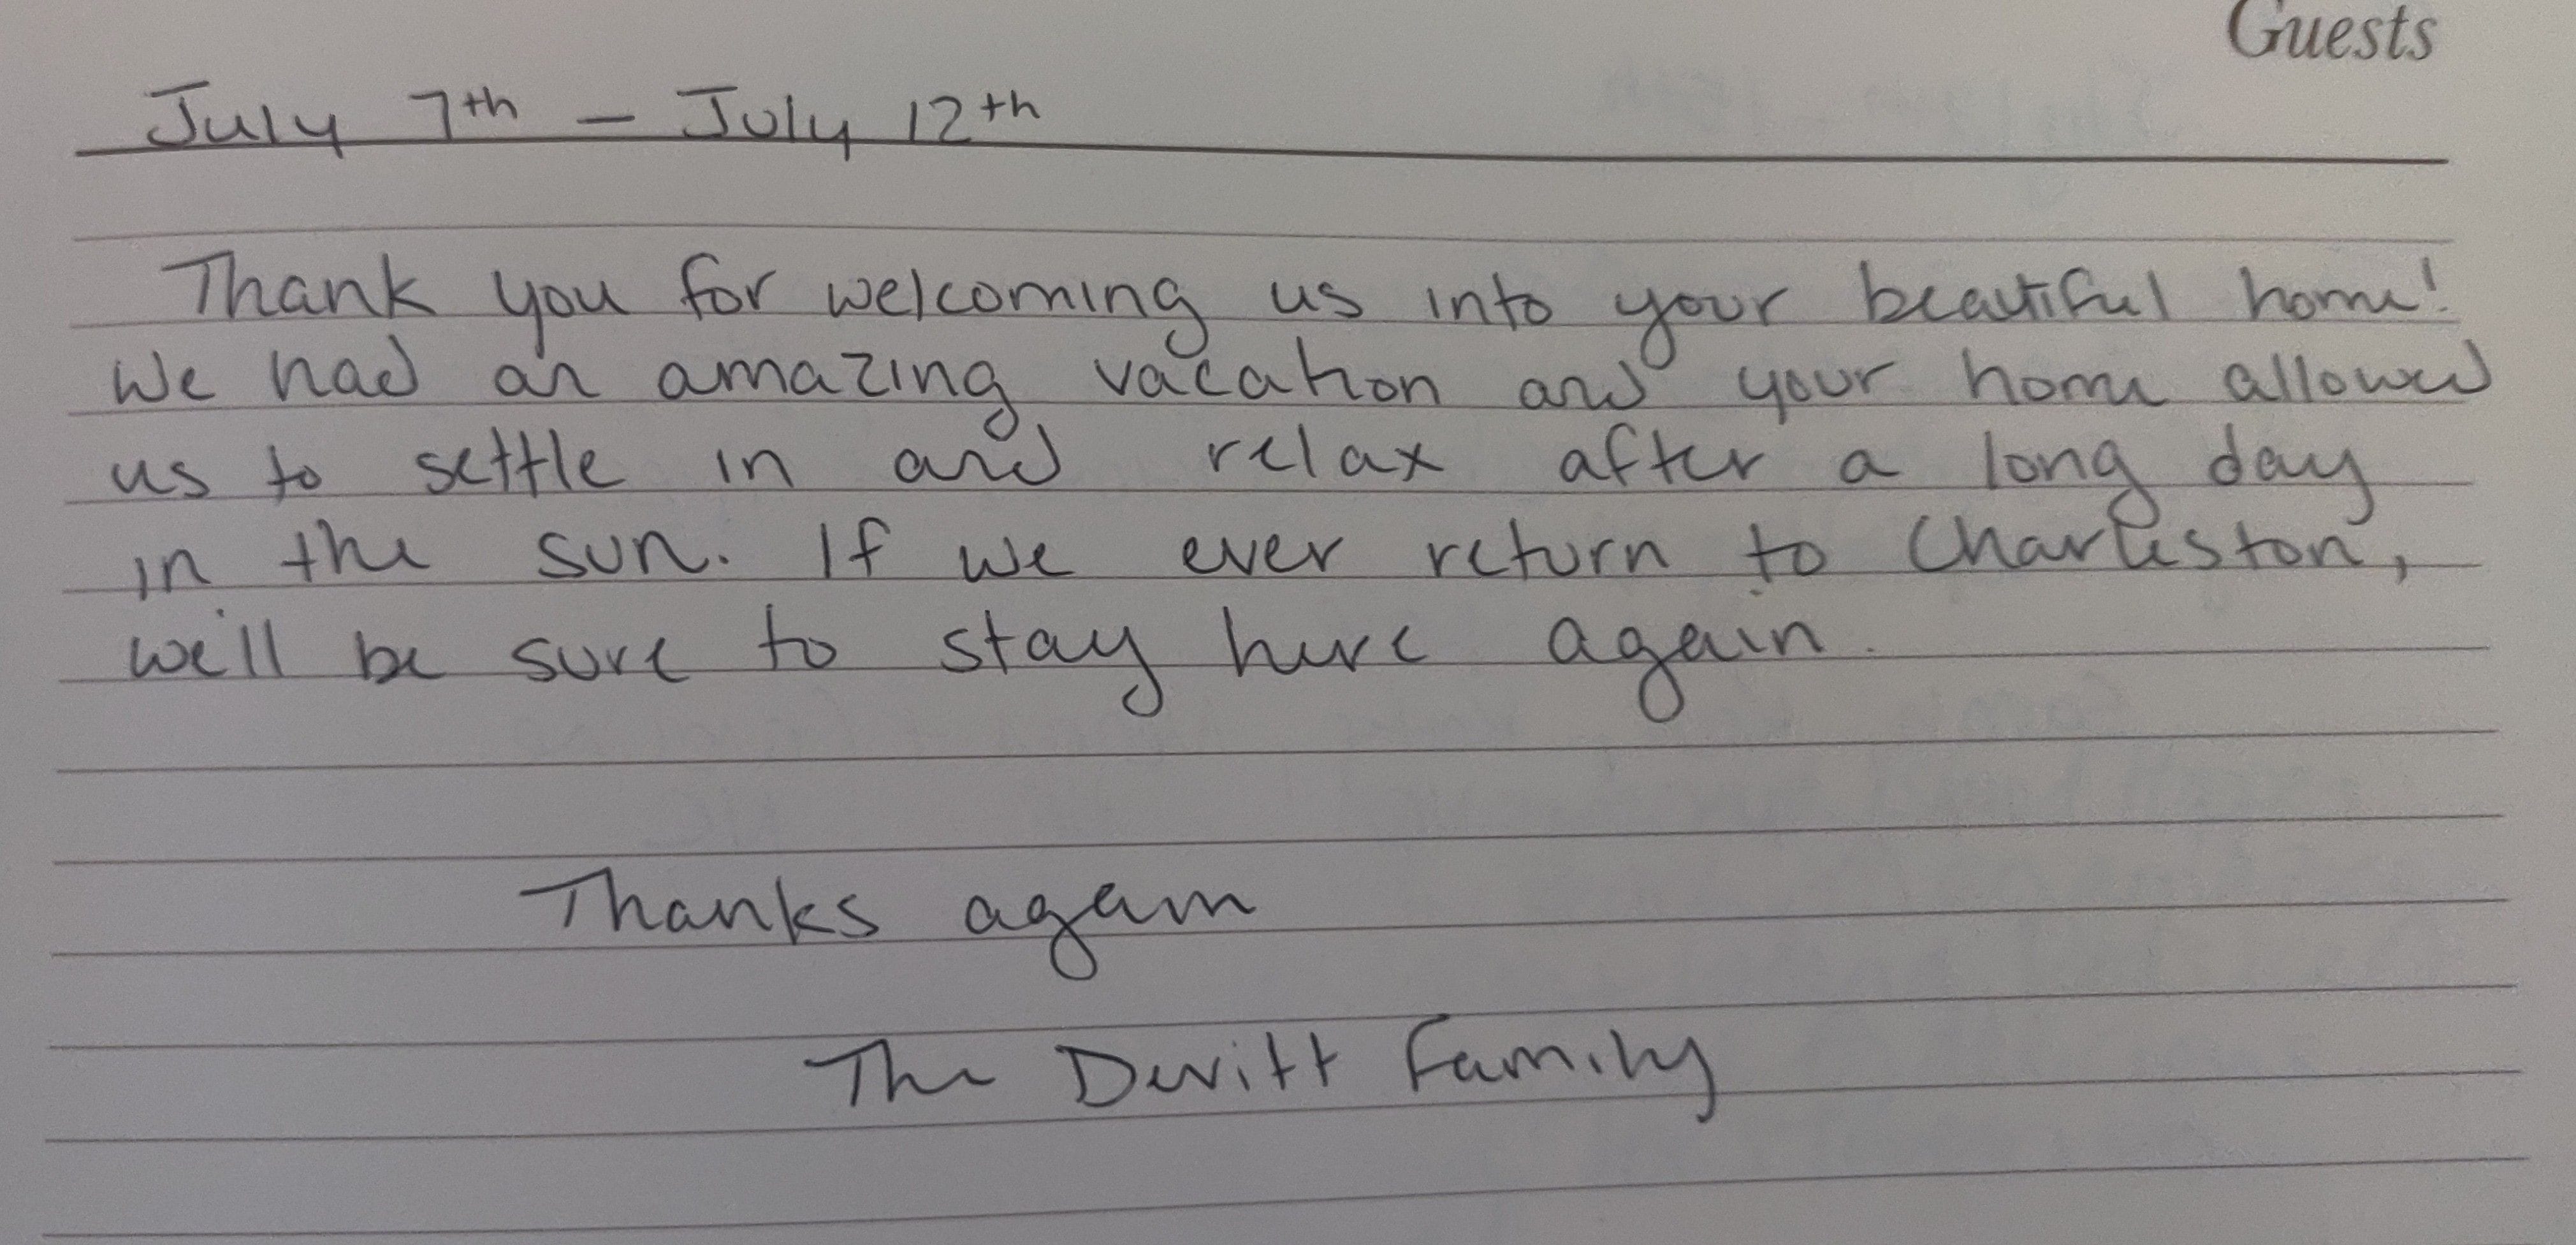 Guests
July 7th - July 12th
Thank you for welcoming us into your beautiful home!
We had an amazing vacation and your home allowed
us to settle in and relax after a long day
in the sun. If we ever return to Charleston,
we'll be sure to stay here again.
Thanks again
The Devitt Family